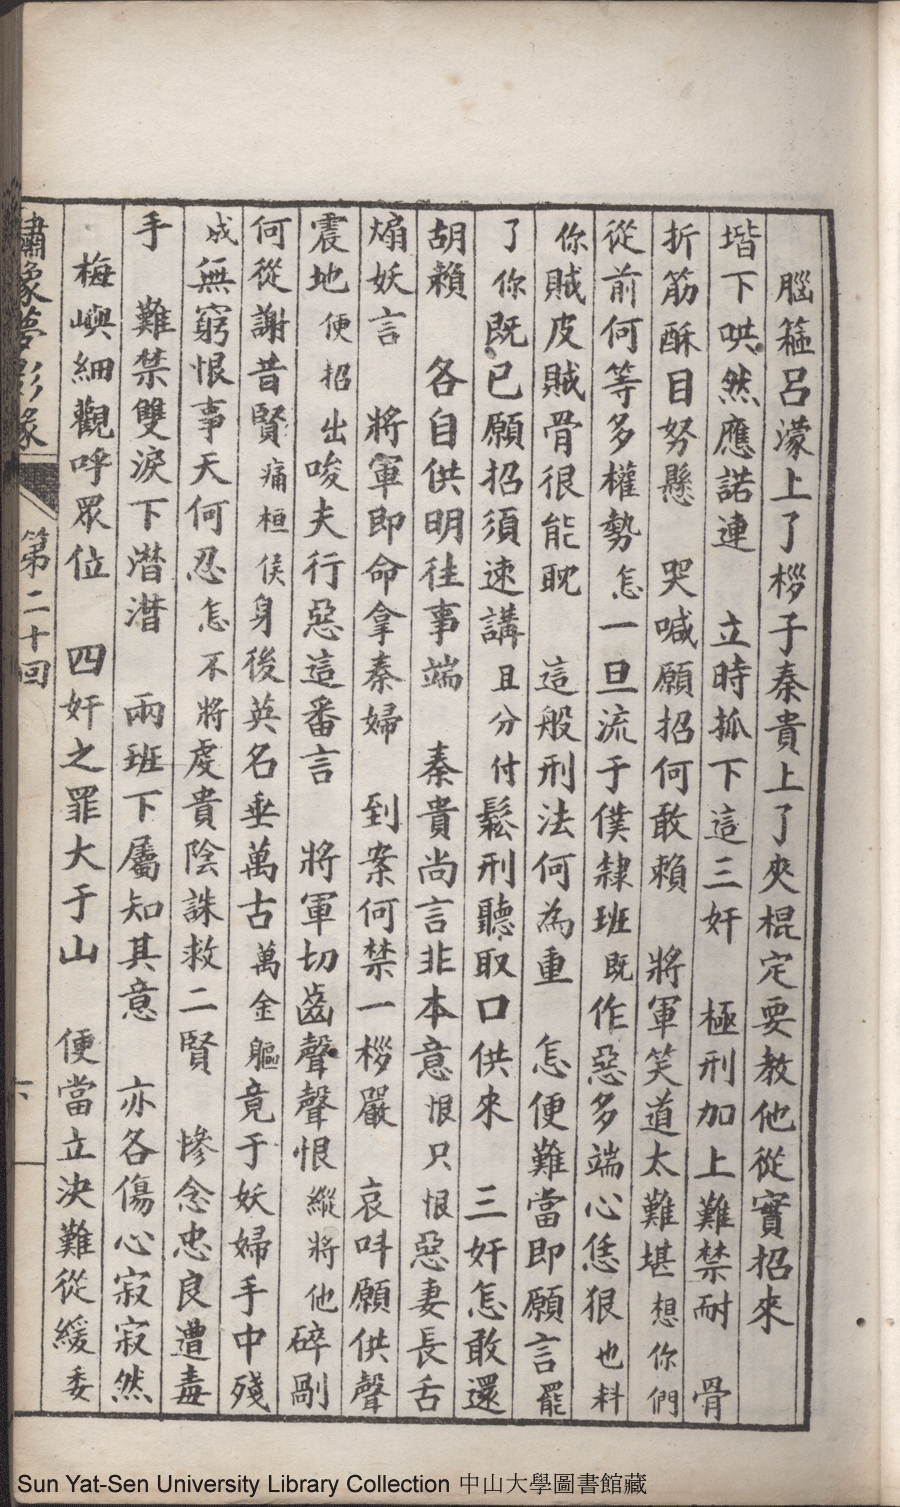 腦箍呂濛上了桚子秦貴上了夾棍定要教他從實招來
堦下哄然應諾連　立時抓下這三奸　極刑加上難禁耐　骨
折筋酥目努懸　哭喊願招何敢賴　將軍笑道太難堪想你們
從前何等多權勢怎一旦流于僕隸班既作惡多端心恁狠也料
你賊皮賊骨很能耽　這般刑法何為重　怎便難當即願言罷
了你既已願招須速講且分付鬆刑聽取口供來　三奸怎敢還
胡賴　各自供明往事端　秦貴尚言非本意恨只恨惡妻長舌
煽妖言　將軍即命拿秦婦　到案何禁一桚嚴　哀呌願供聲
震地便招出唆夫行惡這番言　將軍切齒聲聲恨縱將他碎剮
何從謝昔賢痛桓侯身後英名垂萬古萬金軀竟于妖婦手中殘
成無窮恨事天何忍怎不將虔貴陰誅救二賢　慘念忠良遭毒
手　難禁雙淚下潸潸　兩班下屬知其意　亦各傷心寂寂然
梅嶼細觀呼眾位　四奸之罪大于山　便當立決難從緩委
繡像夢影緣　第二十回　六
Sun Yat-Sen University Library Collection 中山大學圖書館藏